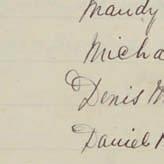 Mandy
Micha
Denis M
Daniel